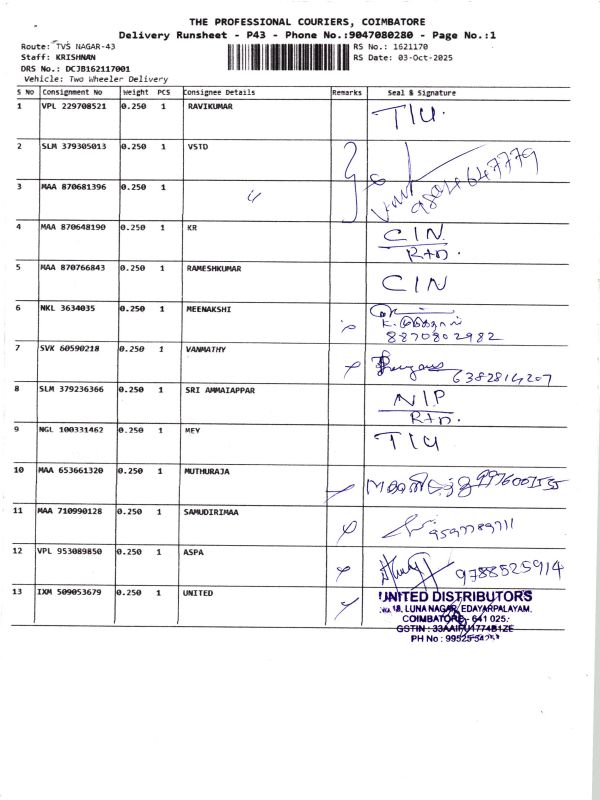 THE PROFESSIONAL COURIERS, COIMBATORE
Delivery Runsheet - P43 - Phone No.:9047080280 - Page No.:1
Route: TVS NAGAR-43 RS No.: 1621170
Staff: KRISHNAN RS Date: 03-Oct-2025
DRS No.: DCJB162117001
Vehicle: Two Wheeler Delivery
S No Consignment No Weight PCS Consignee Details Remarks Seal & Signature
1 VPL 229708521 0.250 1 RAVIKUMAR T/U.
2 SLM 379305013 0.250 1 VSTD
3 MAA 870681396 0.250 1 〃
4 MAA 870648190 0.250 1 KR CIN
Rtn.
5 MAA 870766843 0.250 1 RAMESHKUMAR CIN
6 NKL 3634035 0.250 1 MEENAKSHI
8870802982
7 SVK 60590218 0.250 1 VANMATHY 6382814207
8 SLM 379236366 0.250 1 SRI AMMAIAPPAR NIP
Rtn.
9 NGL 100331462 0.250 1 MEY T/U
10 MAA 653661320 0.250 1 MUTHURAJA
11 MAA 710990128 0.250 1 SAMUDIRIMAA
12 VPL 953089850 0.250 1 ASPA 9788525914
13 IXM 509053679 0.250 1 UNITED UNITED DISTRIBUTORS
18, LUNA NAGAR, EDAYARPALAYAM.
COIMBATORE - 641 025.
GSTIN : 33AAIFU1774B1ZE
PH No :